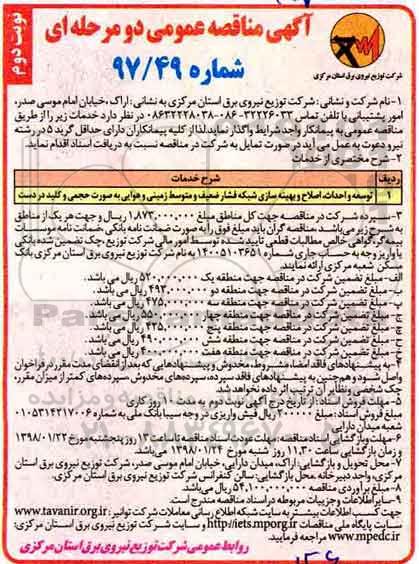 نوبت دوم
آگهی مناقصه عمومی دو مرحله ای
شماره ۹۷/۴۹
شرکت توزیع نیروی برق استان مرکزی
۱- نام شرکت و نشانی : شرکت توزیع نیروی برق استان مرکزی به نشانی : اراک ، خیابان امام موسی صدر،
امور پشتیبانی با تلفن تماس ۳۲۲۲۶۰۳۳-۰۸۶ -۰۸۶۳۲۲۲۸۰۳۸ در نظر دارد خدمات زیر را از طریق
مناقصه عمومی به پیمانکار واجد شرایط واگذار نماید. لذا از کلیه پیمانکاران دارای حداقل گرید ۵ در رشته
نیرو دعوت به عمل می آید در صورت تمایل به شرکت در مناقصه نسبت به دریافت اسناد اقدام نماید.
۲- شرح مختصری از خدمات
ردیف شرح خدمات
۱ توسعه و احداث، اصلاح و بهینه سازی شبکه فشار ضعیف و متوسط زمینی و هوایی به صورت حجمی و کلید در دست
۳- سپرده شرکت در مناقصه جهت کل مناطق مبلغ ۱,۸۷۳,۰۰۰,۰۰۰ ریال و جهت هر یک از مناطق
به شرح زیر می باشد. مناقصه گران باید مبلغ فوق را به صورت ضمانت نامه بانکی ،ضمانت نامه موسسات
بیمه گر،گواهی خالص مطالبات قطعی تایید شده توسط امور مالی شرکت توزیع ،چک تضمین شده بانکی
یا واریز وجه به حساب جاری شماره ۱۴۰۰۵۱۰۳۶۵۱ به نام شرکت توزیع نیروی برق استان مرکزی بانک
مسکن شعبه مرکزی ارائه نمایند.
الف- مبلغ تضمین شرکت در مناقصه جهت منطقه یک ۵۲۰,۰۰۰,۰۰۰ ریال می باشد.
ب- مبلغ تضمین شرکت در مناقصه جهت منطقه دو ۴۹۳,۰۰۰,۰۰۰ ریال می باشد.
پ- مبلغ تضمین شرکت در مناقصه جهت منطقه سه ۴۷۵,۰۰۰,۰۰۰ ریال می باشد.
ج- مبلغ تضمین شرکت در مناقصه جهت منطقه چهار ۵۵۰,۰۰۰,۰۰۰ ریال می باشد.
چ- مبلغ تضمین شرکت در مناقصه جهت منطقه پنج ۴۳۵,۰۰۰,۰۰۰ ریال می باشد.
ح- مبلغ تضمین شرکت در مناقصه جهت منطقه شش ۴۹۰,۰۰۰,۰۰۰ ریال می باشد.
خ- مبلغ تضمین شرکت در مناقصه جهت منطقه هفت ۴۰۰,۰۰۰,۰۰۰ ریال می باشد.
۴- به پیشنهادهای فاقد امضاء، مشروط، مخدوش و پیشنهادهایی که بعد از انقضای مدت مقرر در فراخوان
واصل شود و همچنین به پیشنهادهای فاقد سپرده، سپرده‌های مخدوش، سپرده‌های کمتر از میزان مقرر،
چک شخصی و نظایر آن ترتیب اثر داده نخواهد شد.
۵- مهلت فروش اسناد: از تاریخ درج آگهی نوبت دوم به مدت ۱۰ روز کاری
مبلغ فروش اسناد: مبلغ ۳۰۰,۰۰۰ ریال فیش واریزی در وجه سیبا بانک ملی به شماره ۰۱۰۵۳۱۴۲۱۷۰۰۶
شعبه میدان دارایی
۶- مهلت وبازگشایی اسناد مناقصه :مهلت عودت اسناد مناقصه تا ساعت ۱۳ روز پنجشنبه مورخ ۱۳۹۸/۰۱/۲۲
و زمان بازگشایی ساعت ۱۱،۳۰ روز شنبه مورخ ۱۳۹۸/۰۱/۲۴ می باشد.
۷- محل تحویل و بازگشایی: اراک، میدان دارایی، خیابان امام موسی صدر، شرکت توزیع نیروی برق استان
مرکزی، واحد دبیرخانه .محل بازگشایی: سالن کنفرانس شرکت توزیع نیروی برق استان مرکزی
۸- مبلغ برآوردی مناقصه ۵۴,۱۰۰,۰۰۰,۰۰۰ ریال می باشد.
۹- سایر اطلاعات و جزییات مربوطه در اسناد مناقصه مندرج است.
جهت کسب اطلاعات بیشتر به سایت شبکه اطلاع رسانی معاملات شرکت توانیر : www.tavanir.org.ir
سایت پایگاه ملی مناقصات http://iets.mporg.ir و سایت شرکت توزیع نیروی برق استان مرکزی:
www.mpedc.ir مراجعه فرمایید.
روابط عمومی شرکت توزیع نیروی برق استان مرکزی